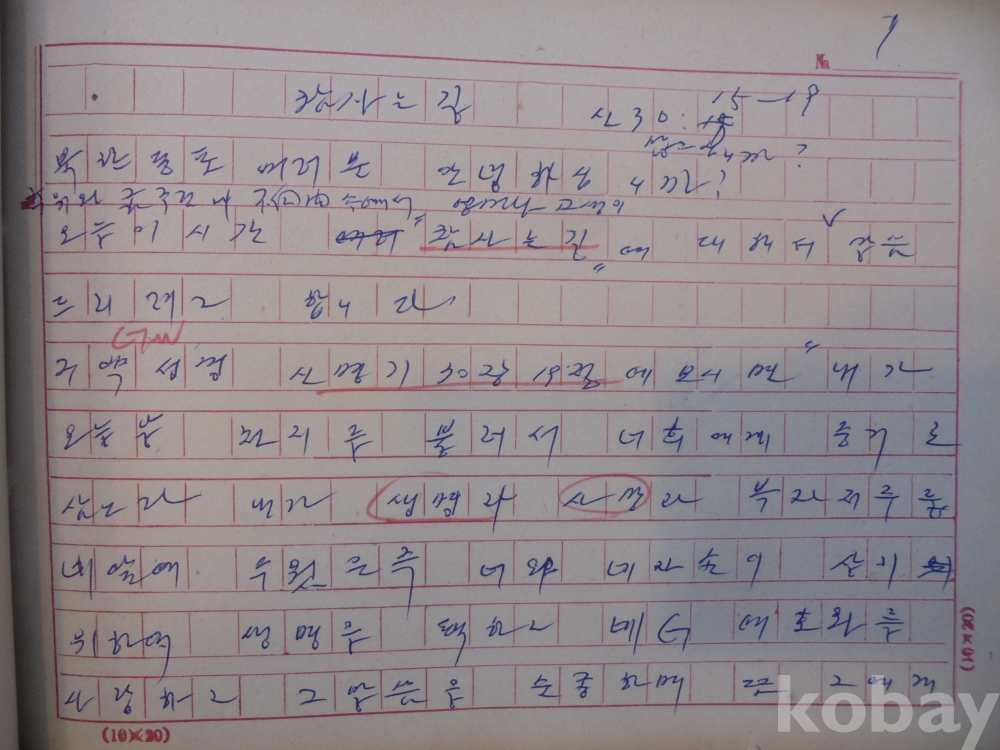 7
№
참 사는 길
신 30: 15-19
북한 동포 여러분 안녕하십니까?
오늘 이 시간 "참 사는 길"에 대해서 말씀
드리려고 합니다
구약 성경 신명기 30장 19절에 보시면 "내가
오늘날 천지를 불러서 너희에게 증거로
삼노라 내가 생명과 사망과 복과 저주를
네 앞에 두었은즉 너와 네 자손이 살기
위하여 생명을 택하고 네 G 여호와를
사랑하고 그 말씀을 순종하며 또 그에게
(10×20)
(10×20)
kobay